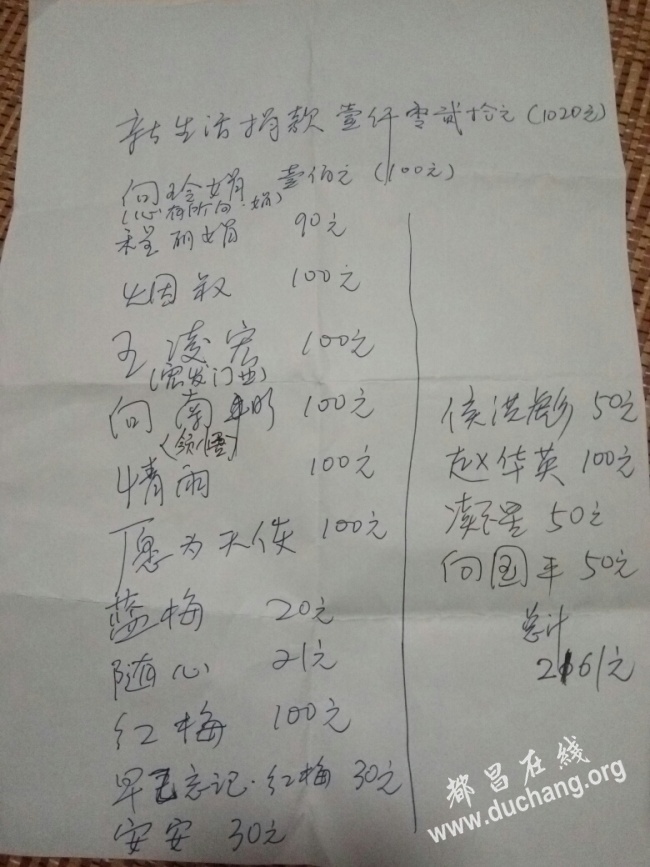 新生活捐款 壹仟零贰拾元 (1020元)
向玲娟 壹佰元 (100元)
(心有所向·娟)
程丽娟 90元
烟 100元
王凌宏 100元
(宏发门业)
向南 明 100元
(领悟)
情雨 100元
愿为天使 100元
蓝梅 20元
随心 21元
红梅 100元
早已忘记·红梅 30元
安安 30元
侯洪彪 50元
赵华英 100元
凌 星 50元
向国平 50元
总计
2161元
都昌在线
www.duchang.org